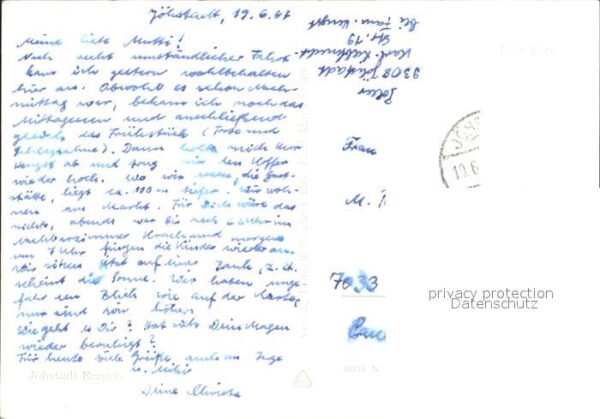 Jöhstadt, 19.6.67
Meine liebe Mutti!
Nach recht umständlicher Fahrt
kam ich gestern wohlbehalten
hier an. Obwohl es schon Nach-
mittag war, bekam ich noch das
Mittagessen und anschließend
gleich das Frühstück (Torte und
Schlagsahne). Dann holte mich Herr
ab und trug mir den Koffer
wieder hoch. Wo wir essen, die Gast-
stätte, liegt ca. 100 m tiefer. Wir woh-
nen am Markt. Für Dich wäre das
nichts, abends war bis nach Uhr im
Nachbarzimmer Krach und morgens
um 7 Uhr fingen die Kinder wieder an.
Wir sitzen jetzt auf einer Bank, z. Zt.
scheint die Sonne. Wir haben unge-
fähr den Blick wie auf der Karte,
nur sind wir höher.
Wie geht es Dir? Hat sich Dein Magen
wieder beruhigt?
Für heute viele Grüße, auch an Inge
u.
Deine
Jöhstadt Erzgeb
bei Fam.
Str. 19
Karl-Liebknecht-
9308 Jöhstadt
Frau
M.
7033
privacy protection
Datenschutz